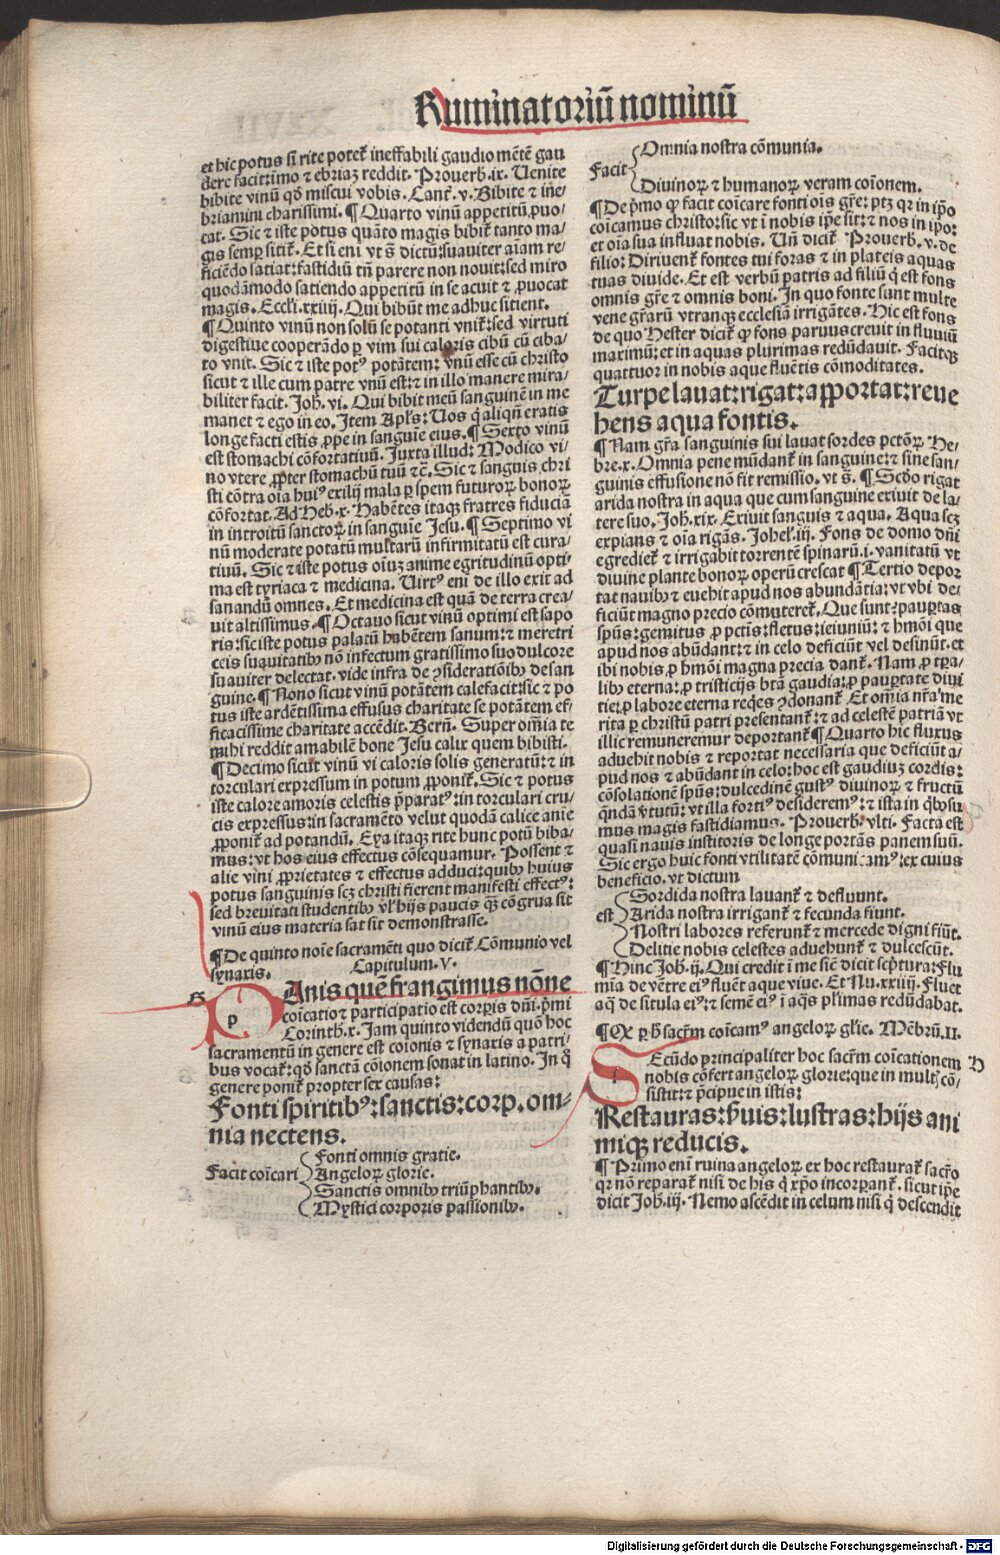 Ruminatoriū nominū
et hic potus si rite potet᷑ ineffabili gaudio mētē gau
dere facit: rimo ⁊ ebriaꝫ reddit. Prouerb. ix. Uenite
bibite vinū qd̓ miscui vobis. Cant̓. v. Bibite ⁊ ine/
briamini charissimi. ¶ Quarto vinū appetitū ꝓuo/
cat. Sic ⁊ iste potus quāto magis bibit᷑ tanto ma/
gis semꝑ sitit᷑. Et si eni vt s̄ dictū: suauiter aīam re/
ficiēdo satiat: fastidiū tn̄ parere non nouit: sed miro
quodāmodo satiendo appetitū in se acuit ⁊ ꝓuocat
magis. Eccli. xxiiij. Qui bibūt me adhuc sitient.
¶ Quinto vinū non solū se potanti vnit᷑: sed virtuti
digestiue cooperādo ꝑ vim sui caloris cibū cū ciba/
to vnit. Sic ⁊ iste potꝰ potātem: vnū esse cū christo
sicut ⁊ ille cum patre vnū est: ⁊ in illo manere mira/
biliter facit. Joh. vi. Qui bibit meū sanguinē in me
manet ⁊ ego in eo. Item Apl̓s: Uos q̓ aliqn̄ eratis
longe facti estis ꝓpe in sanguīe eius. ¶ Sexto vinū
est stomachi cōfortatiuū. Juxta illud: Modico vi/
no vtere ꝓpter stomachū tuū ⁊c̄. Sic ⁊ sanguis chri
sti cōtra oīa huiꝰ exilij mala ꝑ spem futuroꝝ bonoꝝ
cōfortat. Ad Heb. x. Habētes itaqꝫ fratres fiduciā
in introitū sanctoꝝ in sanguīe Jesu. ¶ Septimo vi
nū moderate potatū multarū infirmitatū est cura/
tiuū. Sic ⁊ iste potus oīuꝫ anime egritudinū opti/
ma est tyriaca ⁊ medicina. Uirtꝰ eni de illo exit ad
sanandū omnes. Et medicina est quā de terra crea/
uit altissimus. ¶ Octauo sicut vinū optimi est sapo
ris: sic iste potus palatū habētem sanum: ⁊ meretri
cijs suauitatibꝫ nō infectum gratissimo suo dulcore
suauiter delectat. vide infra de ꝯsideratiōibꝫ de san
guine. ¶ Nono sicut vinū potātem calefacit: sic ⁊ po
tus iste ardētissima effusus charitate se potātem ef/
ficacissime charitate accēdit. Bern̄. Super om̄ia te
mihi reddit amabilē bone Jesu calix quem bibisti.
¶ Decimo sicut vinū vi caloris solis generatū: ⁊ in
torculari expressum in potum ꝓponit᷑. Sic ⁊ potus
iste calore amoris celestis p̄paratꝰ: in torculari cru/
cis expressus: in sacramēto velut quodā calice anīe
ꝓponit᷑ ad potandū. Eya itaqꝫ rite hunc potū biba/
mus: vt hos eius effectus cōsequamur. Possent ⁊
alie vini ꝓprietates ⁊ effectus adduci: quibꝫ huius
potus sanguinis scꝫ christi fierent manifesti effectꝰ:
sed breuitati studentibꝫ vl̓ hijs paucis qꝫ cōgrua sit
vinū eius materia sat sit demonstrasse.
¶ De quinto noīe sacramēti quo dicit᷑ Cōmunio vel
synaxis. Capitulum. V.
p
Anis quē frangimus nōne
coīcatio ⁊ participatio est corꝑis dn̄i. p̄mi
Corinth. x. Jam quinto videndū quō hoc
sacramentū in genere est coīonis ⁊ synaxis a patri/
bus vocat᷑: qd̓ sanctā cōionem sonat in latino. In q̓
genere ponit᷑ propter sex causas:
Fonti spiritibꝰ: sanctis: corp. om-
nia nectens.
Facit coīcari
Fonti omnis gratie.
Angeloꝝ glorie.
Sanctis omnibꝫ triūphantibꝫ.
Mystici corporis passionibꝫ.
Facit
Omnia nostra cōmunia.
Diuinoꝝ ⁊ humanoꝝ veram coīonem.
¶ De p̄mo ꝙ facit coīcare fonti oīs gr̄e: ptꝫ qꝛ in ip̄o
coīcamus christo: sic vt ī nobis ip̄e sit: ⁊ nos in ip̄o:
et oīa sua influat nobis. Un̄ dicit᷑ Prouerb. v. de
filio: Diriuent᷑ fontes tui foras ⁊ in plateis aquas
tuas diuide. Et est verbū patris ad filiū q̓ est fons
omnis gr̄e ⁊ omnis boni. In quo fonte sunt multe
vene gr̄arū vtranqꝫ ecclesiā irrigātes. Hic est fons
de quo Hester dicit᷑ ꝙ fons paruus creuit in fluuiū
maximū: et in aquas plurimas redūdauit. Facitqꝫ
quattuor in nobis aque fluētis cōmoditates.
Turpe lauat: rigat: apportat: reue
hens aqua fontis.
¶ Nam gr̄a sanguinis sui lauat sordes pctōꝝ He/
bre. x. Omnia pene mūdant᷑ in sanguine: ⁊ sine san/
guinis effusione nō fit remissio. vt s̄. ¶ Scd̓o rigat
arida nostra in aqua que cum sanguine exiuit de la/
tere suo. Joh. xix. Exiuit sanguis ⁊ aqua. Aqua scꝫ
expians ⁊ oīa rigās. Johel. iij. Fons de domo dn̄i
egrediet᷑ ⁊ irrigabit torrentē spinarū. i. vanitatū vt
diuine plante bonoꝝ operū crescat ¶ Tertio depor
tat nauibꝫ ⁊ euehit apud nos abundātia: vt vbi de/
ficiūt magno precio cōmuteret᷑. Que sunt? pauꝑtas
spūs: gemitus ꝓ pctīs: fletus: ieiuniū: ⁊ hmōi que
apud nos abūdant: ⁊ in celo deficiūt vel desinūt. et
ibi nobis ꝓ hmōi magna precia dant᷑. Nam ꝓ tꝑa/
libꝫ eterna: ꝓ tristicijs btā gaudia: ꝓ pauꝑtate diui
tie: ꝓ labore eterna reqͥes ꝯdonant᷑. Et om̄ia nr̄a me
rita ꝑ christū patri presentant᷑: ⁊ ad celestē patriā vt
illic remuneremur deportant᷑. ¶ Quarto hic fluxus
aduehit nobis ⁊ reportat necessaria que deficiūt a/
pud nos ⁊ abūdant in celo: hoc est gaudiuꝫ cordis:
cōsolationē spūs: dulcedinē gustꝰ diuinoꝝ ⁊ fructū
qͣndā v̓tutū: vt illa fortiꝰ desideremꝰ: ⁊ ista in qͥbꝰ su
mus magis fastidiamus. Prouerb. vlti. Facta est
quasi nauis institoris de longe portās panem suū.
Sic ergo huic fonti vtilitatē cōmunicamꝰ: ex cuius
beneficio. vt dictum
est
Sordida nostra lauant᷑ ⁊ defluunt.
Arida nostra irrigant᷑ ⁊ fecunda fiunt.
Nostri labores referunt᷑ ⁊ mercede digni fiūt.
Delitie nobis celestes aduehunt᷑ ⁊ dulcescūt.
¶ Hinc Job. ij. Qui credit ī me sic̄ dicit sc̄ptura: Flu
mīa de vētre eiꝰ fluēt aque viue. Et Nu. xxiiij. Fluet
aq̄ de situla eiꝰ: ⁊ semē eiꝰ ī aqͣs pl̓imas redūdabat.
¶ Ex ꝑ h̓ sacr̄m coīcamꝰ angeloꝝ gl̓ie. Mēbrū. II.
Ecūdo principaliter hoc sacr̄m coīcationem
nobis cōfert angeloꝝ glorie: que in multꝭ cō/
sistit: ⁊ p̄cipue in istis:
Restauras: p̄uis: lustras: hijs ani
miqꝫ reducis.
¶ Primo enī ruina angeloꝝ ex hoc restaurat᷑ sacr̄o
qꝛ nō reparat᷑ nisi de his q̓ xp̄o incorꝑant᷑. sicut ip̄e
dicit Joh. iij. Nemo ascēdit in celum nisi q̓ descendit
Digitalisierung gefördert durch die Deutsche Forschungsgemeinschaft - DFG